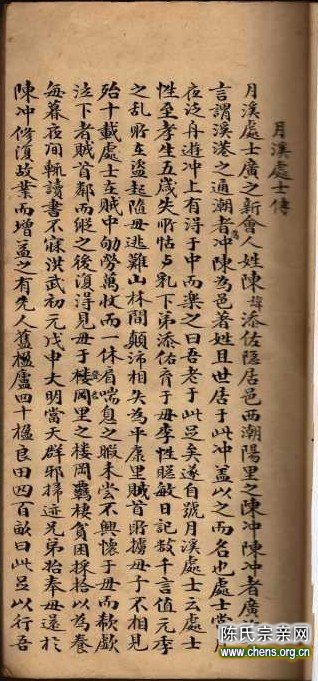 月溪處士傳
月溪處士廣之新會人姓陳諱添佐隱居邑西潮陽里之陳冲陳冲者廣
言謂溪港之通潮者為冲陳為邑著姓且世居于此冲蓋以之而名也處士常
夜泛舟遊冲上有得于中而樂之曰吾老于此足矣遂自號月溪處士云處士
性至孝生五歲失所怙與乳下弟添佑育于母李性聪敏日記數千言值元季
之亂所在盜起隨母逃難山林間顛沛相失為平康里賊首所擄母子不相見
殆十載處士在賊中劬勞萬收而一休肩喘息之暇未嘗不興懷于母而欷歔
泣下者賊首鄰而縱之後復得見母于樓岡里之樓岡羈棲貧困採拾以為養
每暮夜間輒讀書不寐洪武初元戊申大明當天群邪掃迹兄弟奉母還於
陳冲修復故業而增益之有先人舊楹廬四十楹良田四百畝曰此足以行吾
陈氏宗亲网
www.chens.org.cn